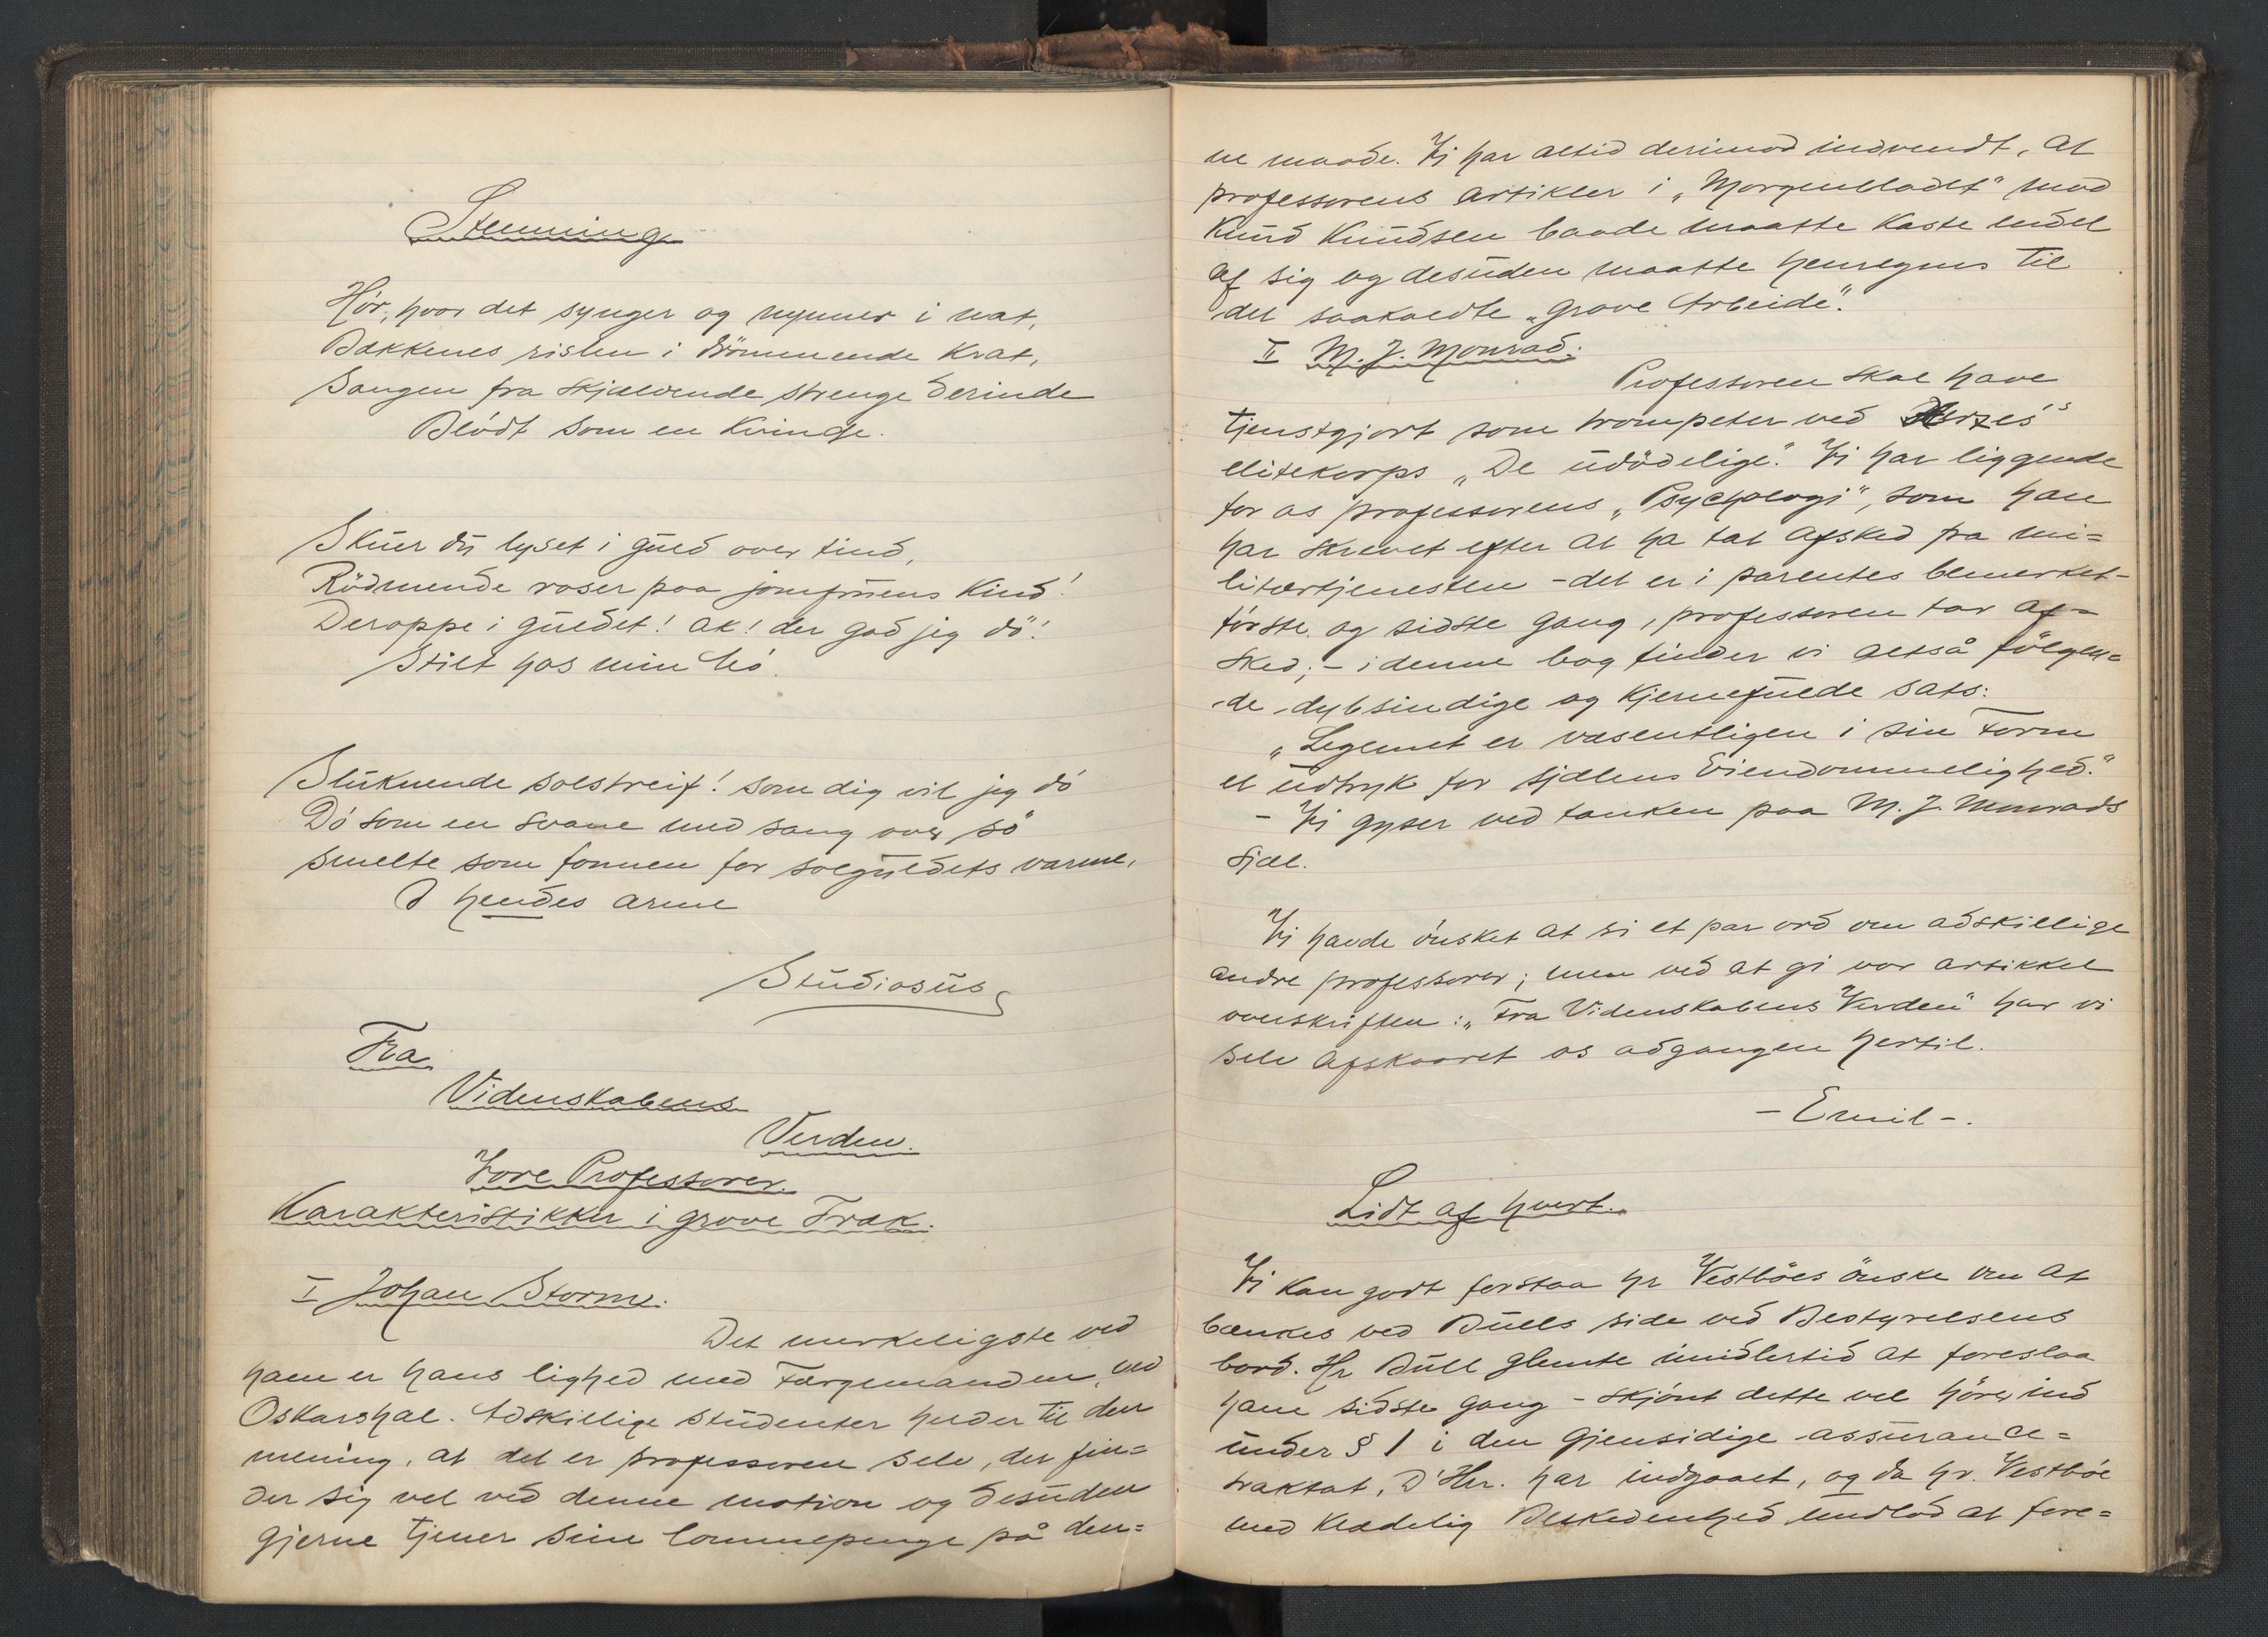 Stemning
Hör, hvor det synger og nynner i nat,
Bækkenes rislen i drömmende Krat,
Sangen fra skjælvende strenge derinde
Blödt som en Kvinde.
Skuer du lyset i guld over tind,
Rödmende roser paa jomfruens Kind!
Deroppe i guldet! ak! der gad jeg dö!
Stilt hos min mö.
Sluknende solstreif! som dig vil jeg dö
Dö som en svane med sang over sö
smelte som fonnen for solguldets varme,
I hendes arme
Studiosus
Fra
Videnskabens
Verden.
Vore Professorer.
Karakteristikker i grove Træk.
I Johan Storm.
Det merkeligste ved
ham er hans lighed med Færgemanden ved
Oskarshal. Adskillige studenter helder til den
mening, at det er professoren selv, der fin=
der sig vel ved denne motion og desuden
gjerne tjener sine lommepenge på den=
ne maade. Vi har altid derimod indvendt, at
professorens artikler i "Morgenbladet" mod
Knud Knudsen baade maatte kaste endel
af sig og desuden maatte henregnes til
det saakaldte "grove Arbeide".
II M. J. Monrad.
Professoren skal have
tjenstgjort som trompeter ved Xerxes's
elitekorps "De udödelige". Vi har liggende
for os professorens "Psychologi", som han
har skrevet efter at ha tat afsked fra mi=
litærtjenesten - det er i parentes bemerket -
förste og sidste gang, professoren tar af=
sked; - i denne bog finder vi altså fölgen=
de dybsindige og kjernefulde sats:
"Legemet er væsentligen i sin Form
et udtryk for sjælens Eiendommelighed."
- Vi gyser ved tanken paa M. J. Monrads
sjæl.
Vi havde önsket at si et par ord om adskillige
andre professorer; men ved at gi vor artikkel
overskriften: "Fra Videnskabens Verden" har vi
selv afskaaret os adgangen hertil.
- Emil -.
Lidt af hvert.
Vi kan godt forstaa hr Vestböes önske om at
bænkes ved Bulls side ved Bestyrelsens
bord. Hr Bull glemte imidlertid at foreslaa
ham sidste gang - skjönt dette vel hörer ind
under § 1 i den gjensidige assurance=
traktat, D'Hrr. har indgaaet, og da hr. Vestböe
med klædelig Beskedenhed undlod at fore=